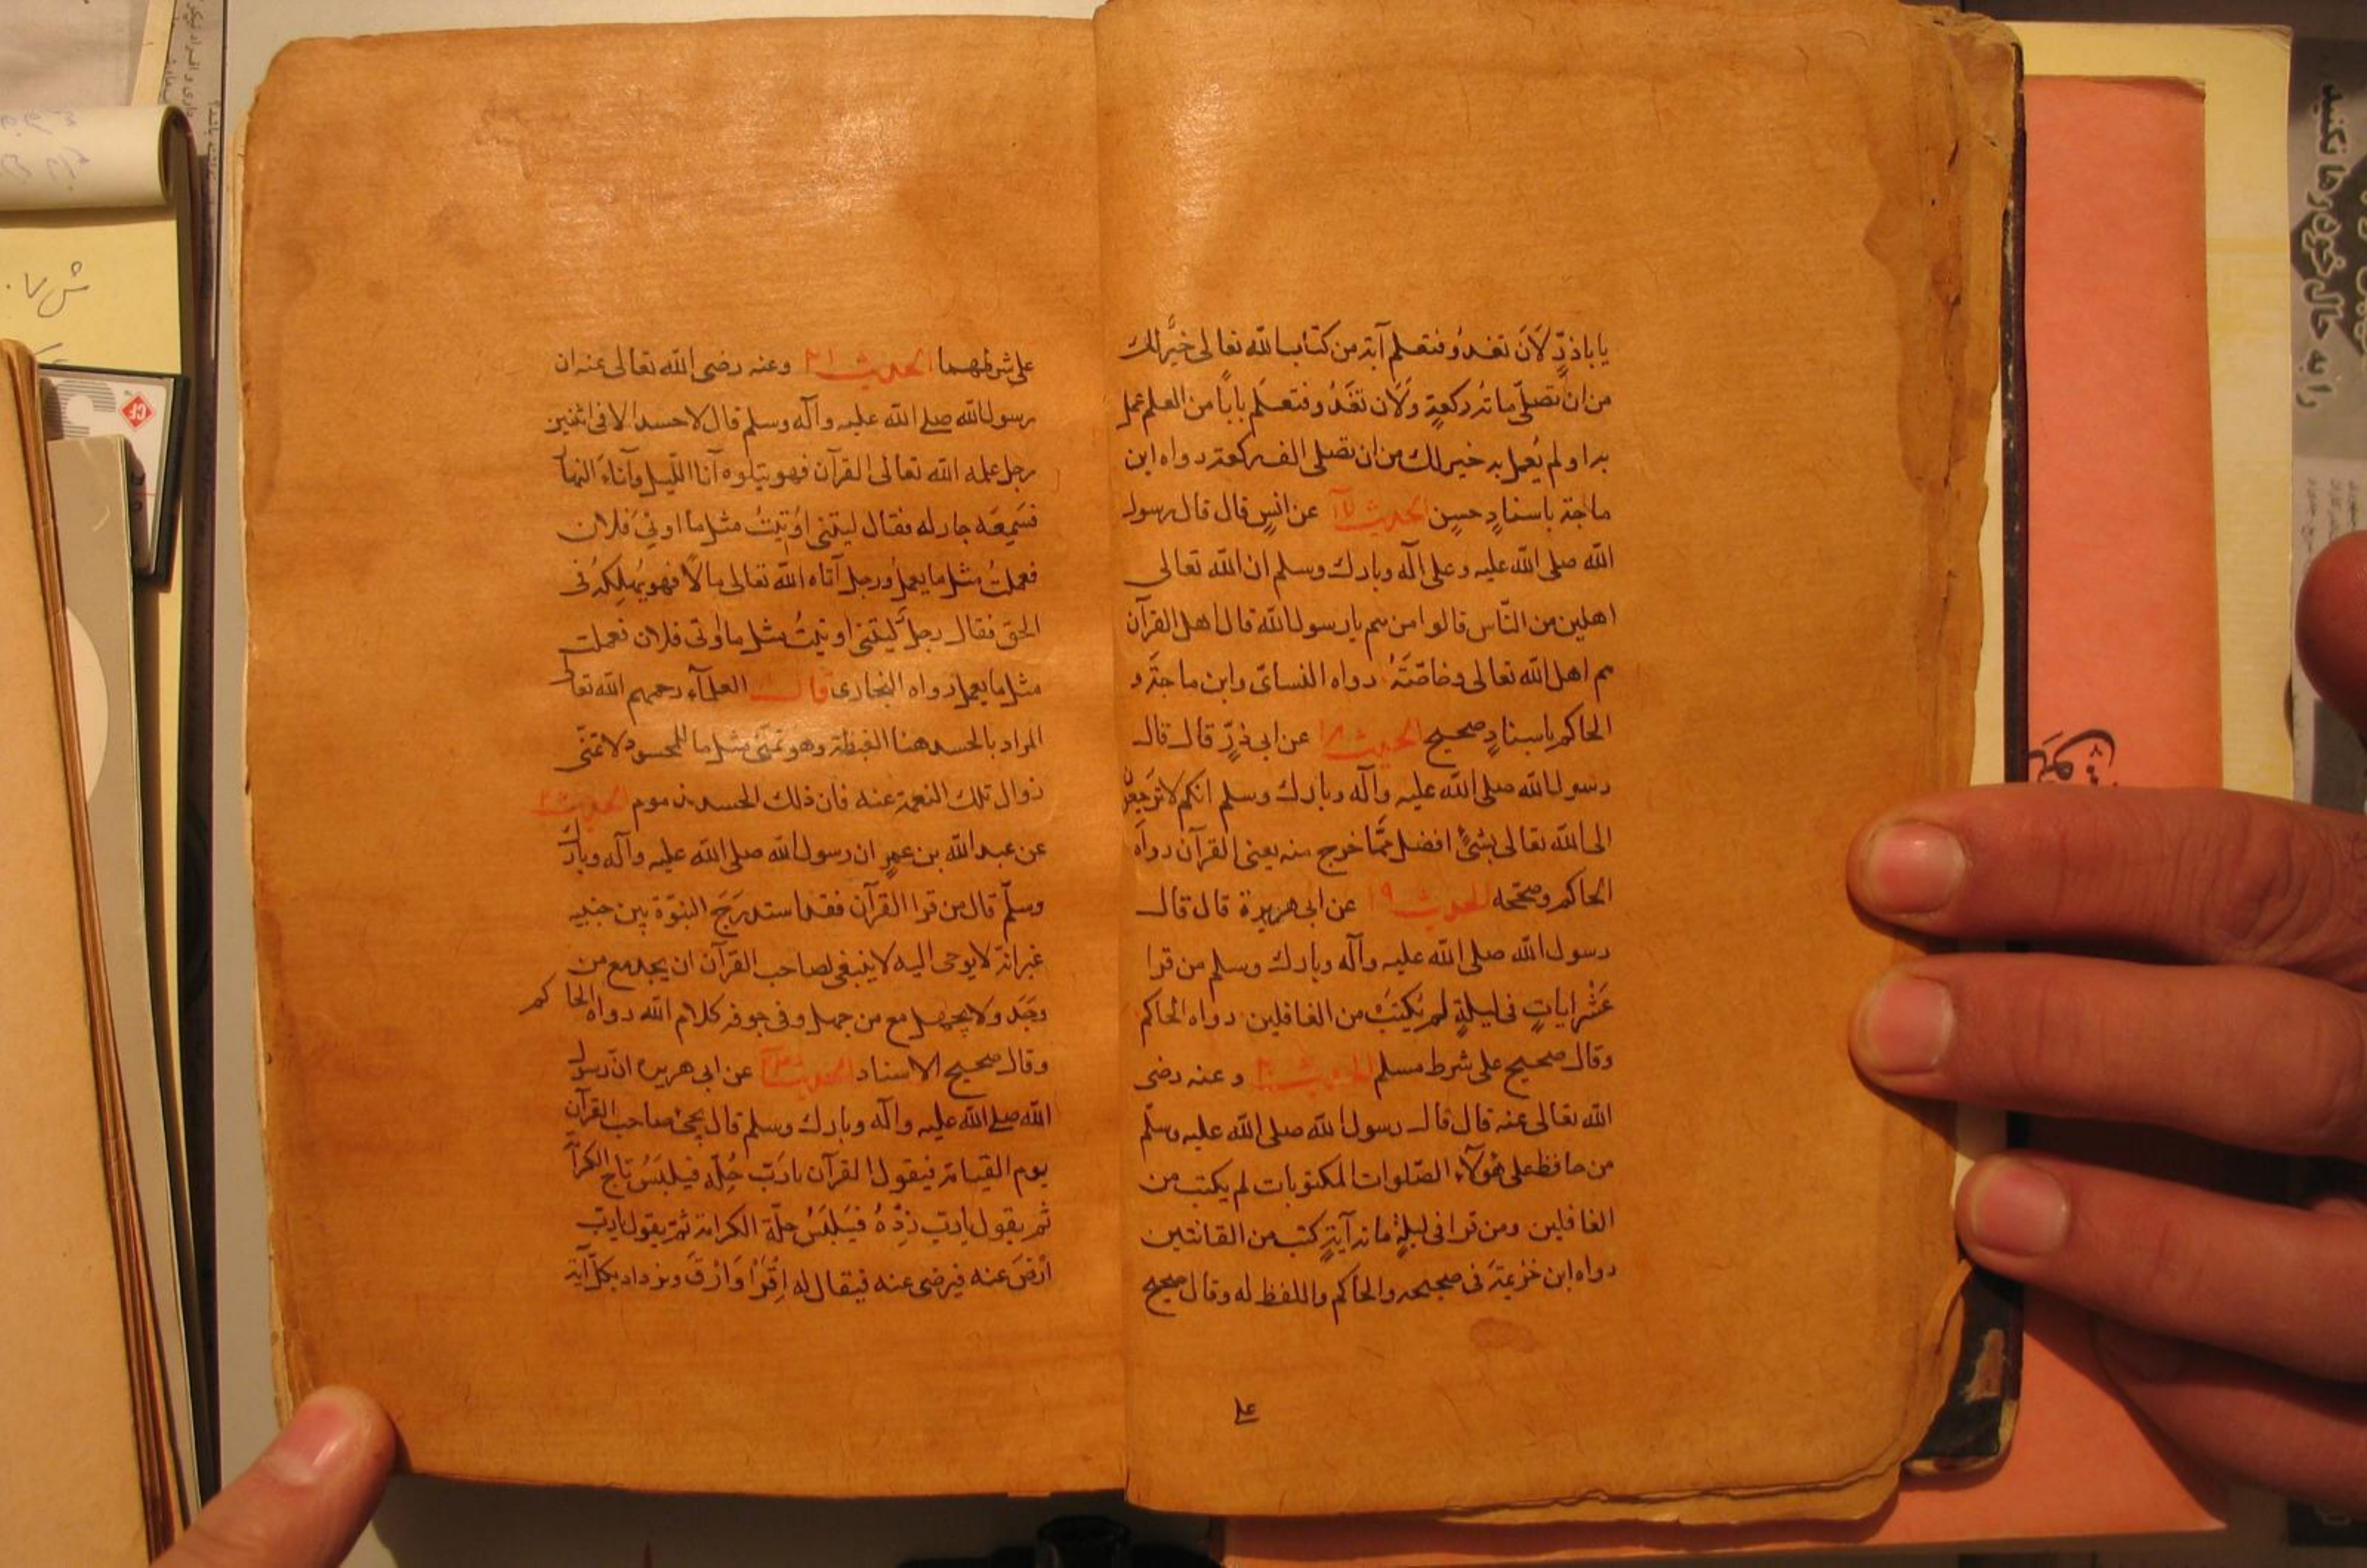 يا باذرٍّ لَاَنَ تغدُو فتعلم آية من كتاب الله تعالى خيرٌ لك
من ان تصلّى مائة ركعةٍ ولَاَن تغدُو فتعلَم باباً من العلم عمل
به او لم يُعمل به خير لك من ان تصلى الف ركعة رواه ابن
ماجة باسنادٍ حسنٍ الحديث ١٧ عن انسٍ قال قال رسول
الله صلى الله عليه وعلى آله وبارك وسلم ان الله تعالى
اهلين من النّاس قالوا من هم يا رسول الله قال اهل القرآن
هم اهل الله تعالى وخاصّتَهُ رواه النسائى وابن ماجةَ و
الحاكم باسنادٍ صحيح الحديث ١٨ عن ابى ذرٍّ قال قال
رسول الله صلى الله عليه وآله وبارك وسلم انكم لا ترجعون
الى الله تعالى بشئٍ افضل ممّا خرج منه يعنى القرآن رواه
الحاكم وصحّحه الحديث ١٩ عن ابى هريرة قال قال
رسول الله صلى الله عليه وآله وبارك وسلم من قرا
عَشْر اياتٍ فى ليلةٍ لم يُكتَبْ من الغافلين رواه الحاكم
وقال صحيح على شرط مسلم الحديث ٢٠ وعنه رضى
الله تعالى عنه قال قال رسول الله صلى الله عليه وسلّم
من حافظ على هٰولآء الصّلوات المكتوبات لم يكتب من
الغافلين ومن قرا فى ليلةٍ مائة آيةٍ كتب من القانتين
رواه ابن خزيمة فى صحيحه والحاكم واللفظ له وقال صحيح
على
على شرطهما الحديث ٢١ وعنه رضى الله تعالى عنه ان
رسول الله صلى الله عليه وآله وسلم قال لا حسد الا فى اثنين
رجل علمه الله تعالى القرآن فهو يتلوه آنا اللّيل وآناءَ النهآ
فسَمِعَه جار له فقال ليتنى اوُتيتُ مثل ما اوتىَ فلان
فعملتُ مثل ما يعمل ورجل آتاه الله تعالى مالًا فهو يُهلِكهُ فى
الحق فقال رجلٌ ليتنى اوتيتُ مثل ما اُوتى فلان فعملت
مثل ما يعمل رواه البخارى قال العلمآء رحمهم الله تعالى
المراد بالحسد هنا الغبطة وهو تمنّى مثل ما للمحسود لا تمنّى
زوال تلك النعمة عنه فان ذلك الحسد مذموم الحديث ٢٢
عن عبد الله بن عمرٍ ان رسول الله صلى الله عليه وآله وبارك
وسلّم قال من قرا القرآن فقد استدرَجَ النبوّة بين جنبيه
غير انّه لا يوحى اليه لا ينبغى لصاحب القرآن ان يجد مع من
وَجَد ولا يجهل مع من جهل وفى جوفه كلام الله رواه الحاكم
وقال صحيح الاسناد الحديث ٢٣ عن ابى هريره انّ رسول
الله صلى الله عليه وآله وبارك وسلم قال يجئ صاحب القرآن
يوم القيامة فيقول القرآن يا رَبّ حُلّهِ فيلبَسُ تاج الكرآ
ثم يقول يا ربّ زِدْهُ فيَلبَسُ حلّة الكرامة ثمّ يقول يا ربّ
ارْضَ عنه فيرضى عنه فيقال له اِقْرَاْ وَارْقَ ويزداد بكلّ آية